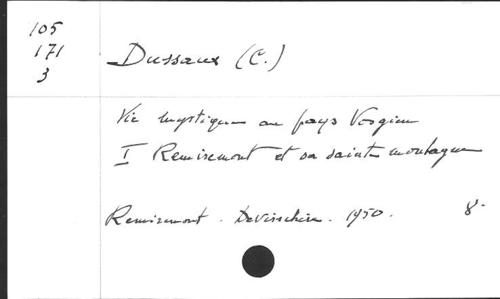 105
171
3
Dussaux (C.)
Vie mystique au pays Vosgien
I Remiremont et sa sainte montagne
Remiremont . Devirschin . 1950 . 8°